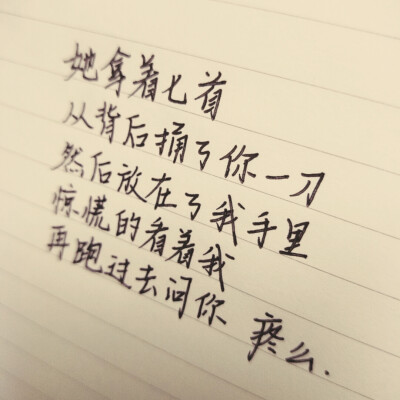 她拿着匕首
从背后捅了你一刀
然后放在了我手里
惊慌的看着我
再跑过去问你 疼么.